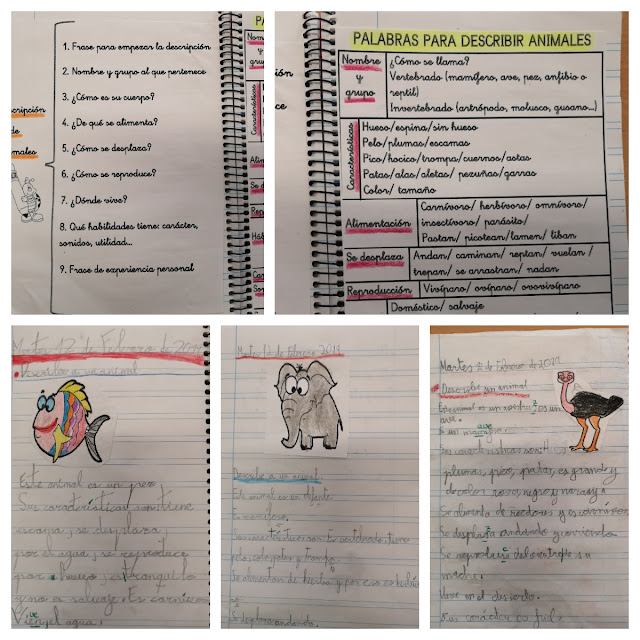 cripción
de
males
1. Frase para empezar la descripción
2. Nombre y grupo al que pertenece
3. ¿Cómo es su cuerpo?
4. ¿De qué se alimenta?
5. ¿Cómo se desplaza?
6. ¿Cómo se reproduce?
7. ¿Dónde vive?
8. Qué habilidades tiene: carácter,
sonidos, utilidad...
9. Frase de experiencia personal
PALABRAS PARA DESCRIBIR ANIMALES
Nombre
y
grupo
¿Cómo se llama?
Vertebrado (mamífero, ave, pez, anfibio o
reptil)
Invertebrado (artrópodo, molusco, gusano...)
Características
Hueso/espina/sin hueso
Pelo/plumas/escamas
Pico/hocico/trompa/cuernos/astas
Patas/alas/aletas/ pezuñas/garras
Color/ tamaño
Alimentación
Carnívoro/ herbívoro/ omnívoro/
insectívoro/ parásito/
Pastan/ picotean/lamen/ liban
Se desplaza
Andan/ caminan/ reptan/ vuelan /
trepan/ se arrastran/ nadan
Reproducción
Vivíparo/ ovíparo/ ovovivíparo
Doméstico/ salvaje
Martes 12 de Febrero de
Describe a un animal
Este animal es un pez
Sus características son: tiene
escama, se desplaza
por el agua, se reproduce
por huevo,
a salvaje. Es carnívoro
el agua.
Martes 12 de Febrero 2019
Describe a un animal
Este animal es un elefante
Es mamífero.
pelo, cola, patas y trompa.
Se alimentan de hierba y por eso es
Se desplaza andando.
Martes 12 de Febrero de 2019
Describe un animal
es un
ave.
plumas, pico, patas, es grande y
de color rosa, negro y naranja.
Se alimenta de roedores y es
Se desplaza andando y corriendo
Se reproduce del
madre.
Vive en el desierto.